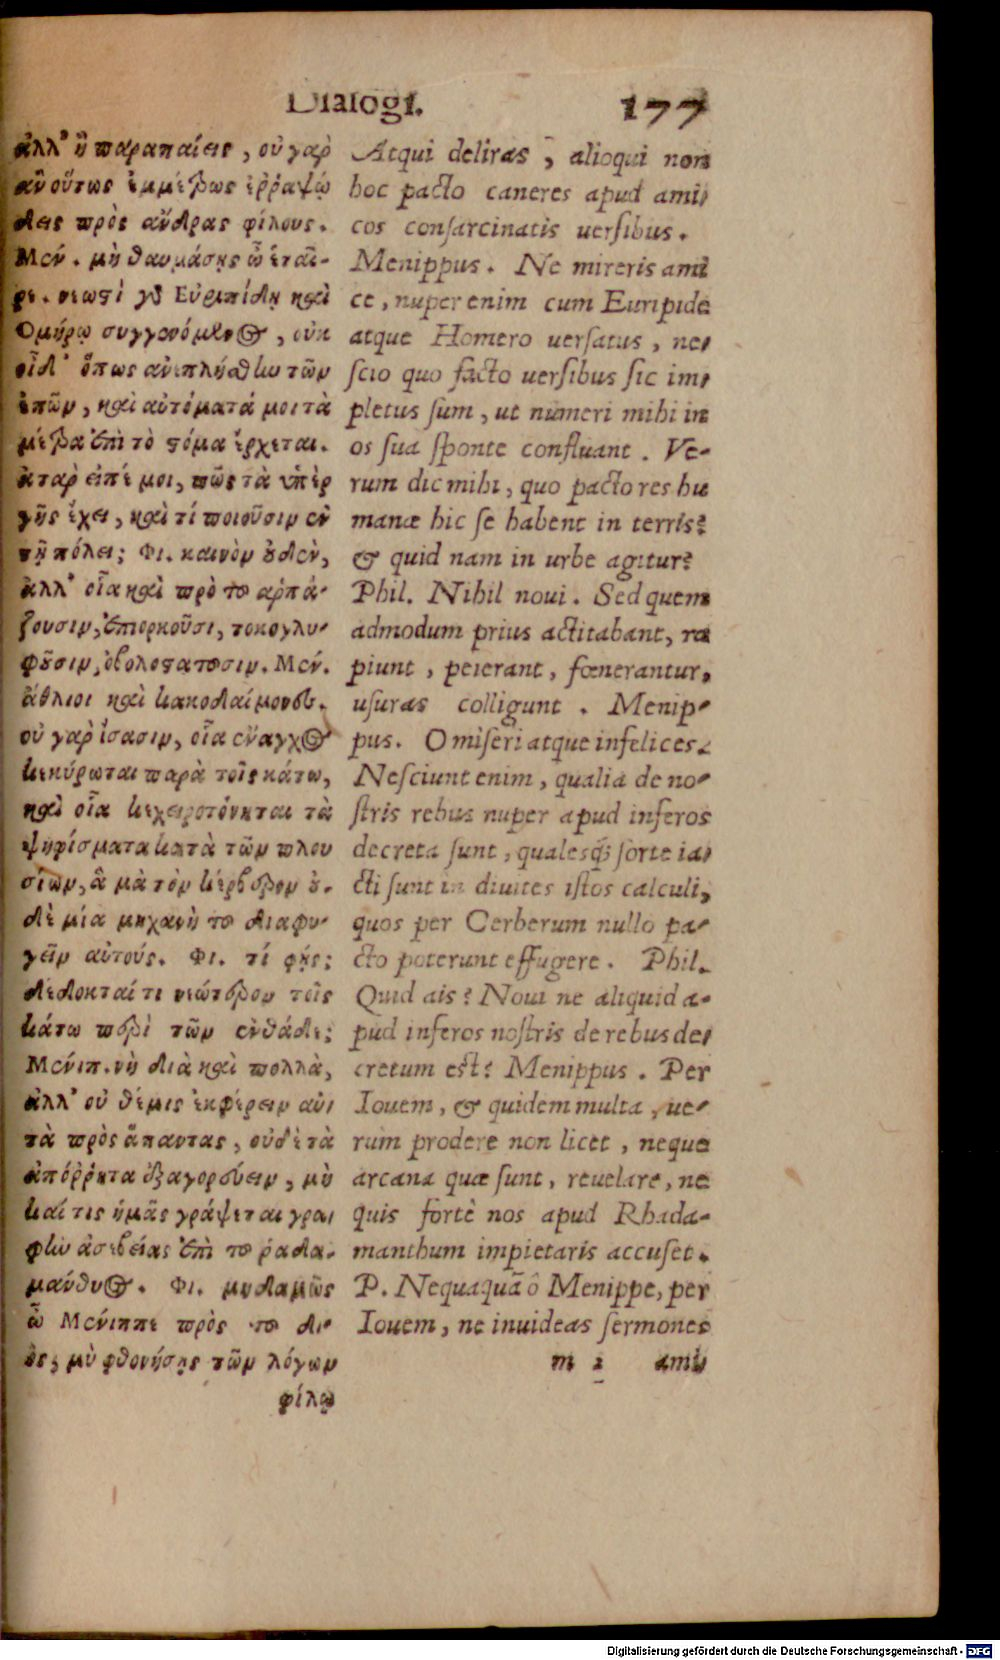 Dialogi. 177
ἀλλ' ἢ παραπαίεις, οὐ γὰρ
ἂν οὕτως ἐμμέτρως ἐρραψῴ
δεις πρὸς ἄνδρας φίλους.
Μεν. μὴ θαυμάσῃς ὦ ἑταῖ-
ρε. νεωστὶ γὰρ Εὐριπίδῃ καὶ
Ὁμήρῳ συγγενόμενος, οὐκ
οἶδ' ὅπως ἀνεπλήσθην τῶν
ἐπῶν, καὶ αὐτόματά μοι τὰ
μέτρα ἐπὶ τὸ στόμα ἔρχεται.
ἀτὰρ εἰπέ μοι, πῶς τὰ ὑπὲρ
γῆς ἔχει, καὶ τί ποιοῦσιν ἐν
τῇ πόλει; Φι. καινὸν οὐδὲν,
ἀλλ' οἷα καὶ πρὸ τοῦ ἁρπά-
ζουσιν, ἐπιορκοῦσι, τοκογλυ-
φοῦσιν, ὀβολοστατοῦσιν. Μεν.
ἄθλιοι καὶ κακοδαίμονες.
οὐ γὰρ ἴσασιν, οἷα ἔναγχος
κεκύρωται παρὰ τοῖς κάτω,
καὶ οἷα κεχειροτόνηται τὰ
ψηφίσματα κατὰ τῶν πλου
σίων, ἃ μὰ τὸν κέρβερον οὐ-
δὲ μία μηχανὴ τοῦ διαφυ-
γεῖν αὐτούς. Φι. τί φῄς;
δέδοκταί τι νεώτερον τοῖς
κάτω περὶ τῶν ἐνθάδε;
Μενιπ. νὴ δία καὶ πολλὰ,
ἀλλ' οὐ θέμις ἐκφέρειν αὐ-
τὰ πρὸς ἅπαντας, οὐδὲ τὰ
ἀπόρρητα ἐξαγορεύειν, μὴ
καί τις ἡμᾶς γράψεται γρα-
φὴν ἀσεβείας ἐπὶ τοῦ ῥαδα-
μάνθυος. Φι. μηδαμῶς
ὦ Μένιππε πρὸς τοῦ δι-
ὸς, μὴ φθονήσῃς τῶν λόγων
φίλῳ
Atqui deliras, alioqui non
hoc pacto caneres apud ami-
cos consarcinatis uersibus.
Menippus. Ne mireris ami
ce, nuper enim cum Euripide
atque Homero uersatus, ne-
scio quo facto uersibus sic im-
pletus sum, ut numeri mihi in
os sua sponte confluant. Ve-
rum dic mihi, quo pacto res hu
manæ hic se habent in terris?
& quid nam in urbe agitur?
Phil. Nihil noui. Sed quem
admodum prius actitabant, ra
piunt, peierant, fœnerantur,
usuras colligunt. Menip-
pus. O miseri atque infelices.
Nesciunt enim, qualia de no-
stris rebus nuper apud inferos
decreta sunt, qualesq́; sorte ia-
cti sunt in diuites istos calculi,
quos per Cerberum nullo pa-
cto poterunt effugere. Phil.
Quid ais? Noui ne aliquid a-
pud inferos nostris de rebus de-
cretum est? Menippus. Per
Iouem, & quidem multa, ue-
rùm prodere non licet, neque
arcana quæ sunt, reuelare, ne
quis fortè nos apud Rhada-
manthum impietatis accuset.
P. Nequaquã ô Menippe, per
Iouem, ne inuideas sermones
m 1 ami-
Digitalisierung gefördert durch die Deutsche Forschungsgemeinschaft - DFG